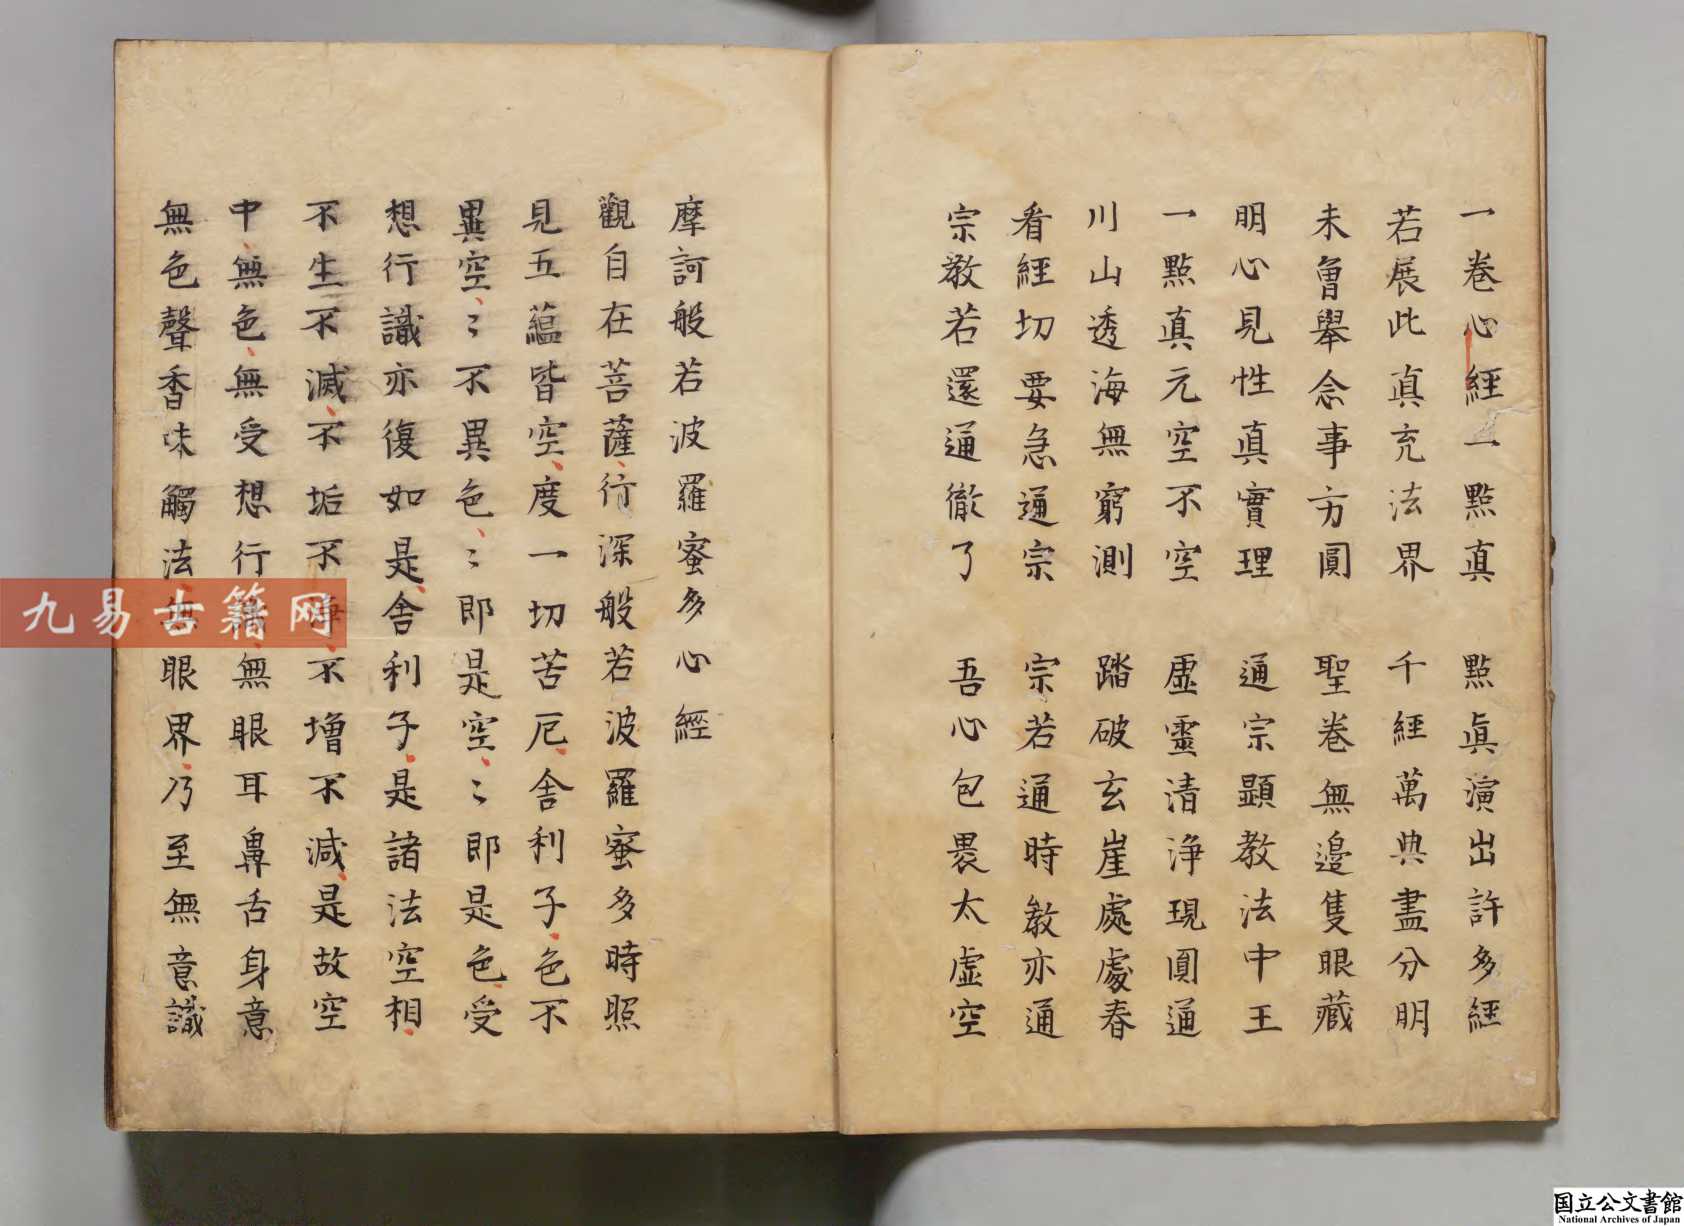 一卷心經一點真　點真演出許多經
若展此真充法界　千經萬典盡分明
未曾舉念事方圓　聖卷無邊隻眼藏
明心見性真實理　通宗顯教法中王
一點真元空不空　虛靈清淨現圓通
川山透海無窮測　踏破玄崖處處春
看經切要急通宗　宗若通時教亦通
宗教若還通徹了　吾心包畏太虛空
摩訶般若波羅蜜多心經
觀自在菩薩行深般若波羅蜜多時照
見五蘊皆空度一切苦厄舍利子色不
異空〻不異色〻即是空〻即是色受
想行識亦復如是舍利子是諸法空相
不生不滅不垢不淨不增不減是故空
中無色無受想行識無眼耳鼻舌身意
無色聲香味觸法無眼界乃至無意識
九易古籍网
国立公文書館
National Archives of Japan